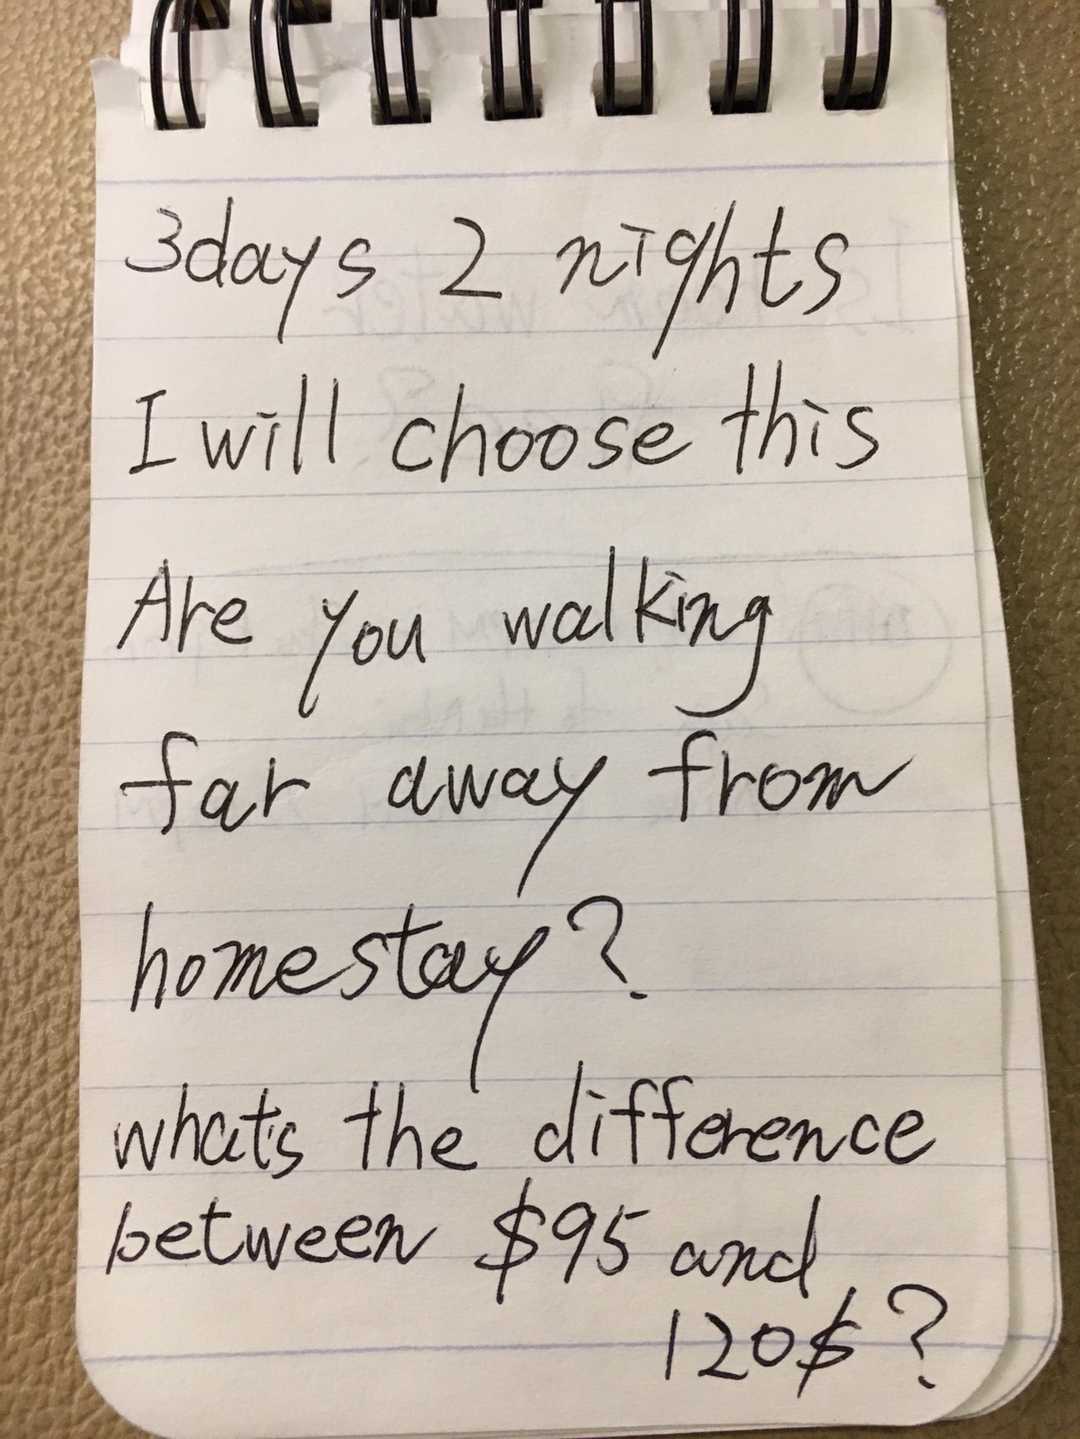 3days 2 nights
I will choose this
Are you walking
far away from
homestay?
what's the difference
between $95 and
120$?